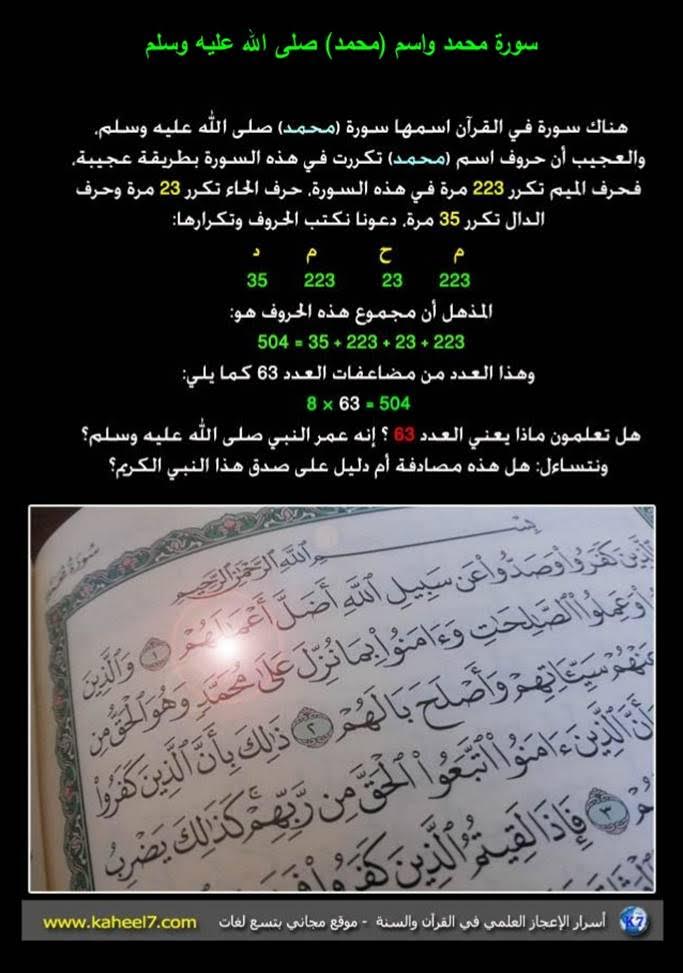 سورة محمد واسم (محمد) صلى الله عليه وسلم
هناك سورة في القرآن اسمها سورة (محمد) صلى الله عليه وسلم،
والعجيب أن حروف اسم (محمد) تكررت في هذه السورة بطريقة عجيبة،
فحرف الميم تكرر 223 مرة في هذه السورة، حرف الحاء تكرر 23 مرة وحرف
الدال تكرر 35 مرة، دعونا نكتب الحروف وتكرارها:
م ح م د
223 23 223 35
المذهل أن مجموع هذه الحروف هو:
223 + 23 + 223 + 35 = 504
وهذا العدد من مضاعفات العدد 63 كما يلي:
504 = 63 × 8
هل تعلمون ماذا يعني العدد 63 ؟ إنه عمر النبي صلى الله عليه وسلم؟
ونتساءل: هل هذه مصادفة أم دليل على صدق هذا النبي الكريم؟
بِسْمِ ٱللَّهِ ٱلرَّحْمَٰنِ ٱلرَّحِيمِ
ٱلَّذِينَ كَفَرُوا۟ وَصَدُّوا۟ عَن سَبِيلِ ٱللَّهِ أَضَلَّ أَعْمَٰلَهُمْ ١ وَٱلَّذِينَ
وَعَمِلُوا۟ ٱلصَّٰلِحَٰتِ وَءَامَنُوا۟ بِمَا نُزِّلَ عَلَىٰ مُحَمَّدٍ وَهُوَ ٱلْحَقُّ مِن
عَنْهُمْ سَيِّـَٔاتِهِمْ وَأَصْلَحَ بَالَهُمْ ٢ ذَٰلِكَ بِأَنَّ ٱلَّذِينَ كَفَرُوا۟
وَأَنَّ ٱلَّذِينَ ءَامَنُوا۟ ٱتَّبَعُوا۟ ٱلْحَقَّ مِن رَّبِّهِمْ كَذَٰلِكَ يَضْرِبُ
٣ فَإِذَا لَقِيتُمُ ٱلَّذِينَ كَفَرُوا۟
أسرار الإعجاز العلمي في القرآن والسنة - موقع مجاني بتسع لغات www.kaheel7.com
K7